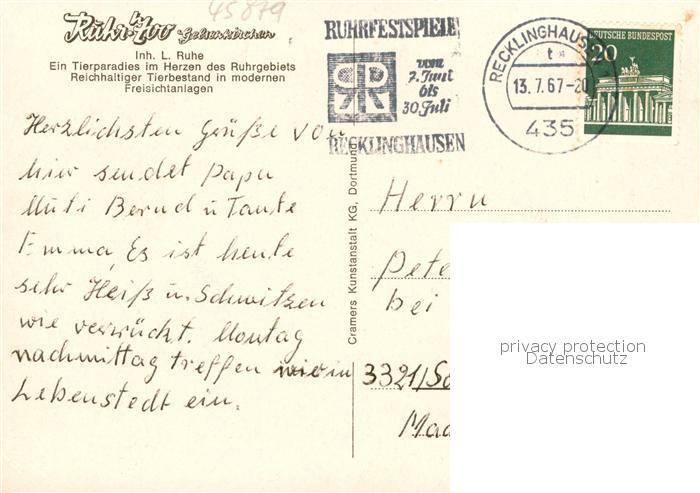 45879
Ruhr-Zoo Gelsenkirchen
Inh. L. Ruhe
Ein Tierparadies im Herzen des Ruhrgebiets
Reichhaltiger Tierbestand in modernen
Freisichtanlagen
RUHRFESTSPIELE
vom
2. Juni
bis
30. Juli
RECKLINGHAUSEN
RECKLINGHAUSEN
t
13.7.67-20
435
DEUTSCHE BUNDESPOST
20
Herzlichsten Grüße von
hier sendet Papa
Muti Bernd u Tante
Emma, Es ist heute
sehr Heiß u. Schwitzen
wie verrückt. Montag
nachmittag treffen wir in
Lebenstedt ein.
Cramers Kunstanstalt KG, Dortmund
Herrn
Pete
bei
3321/Sa
Mad
privacy protection
Datenschutz